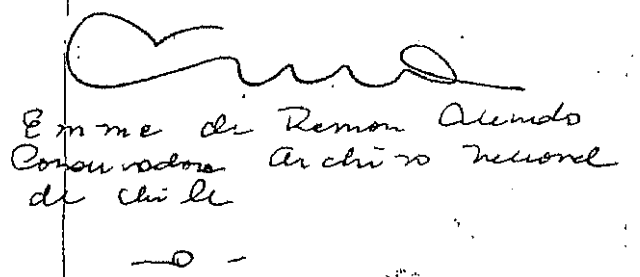 Emma de Ramon Acevedo
Conservadora Archivo Nacional
de Chile